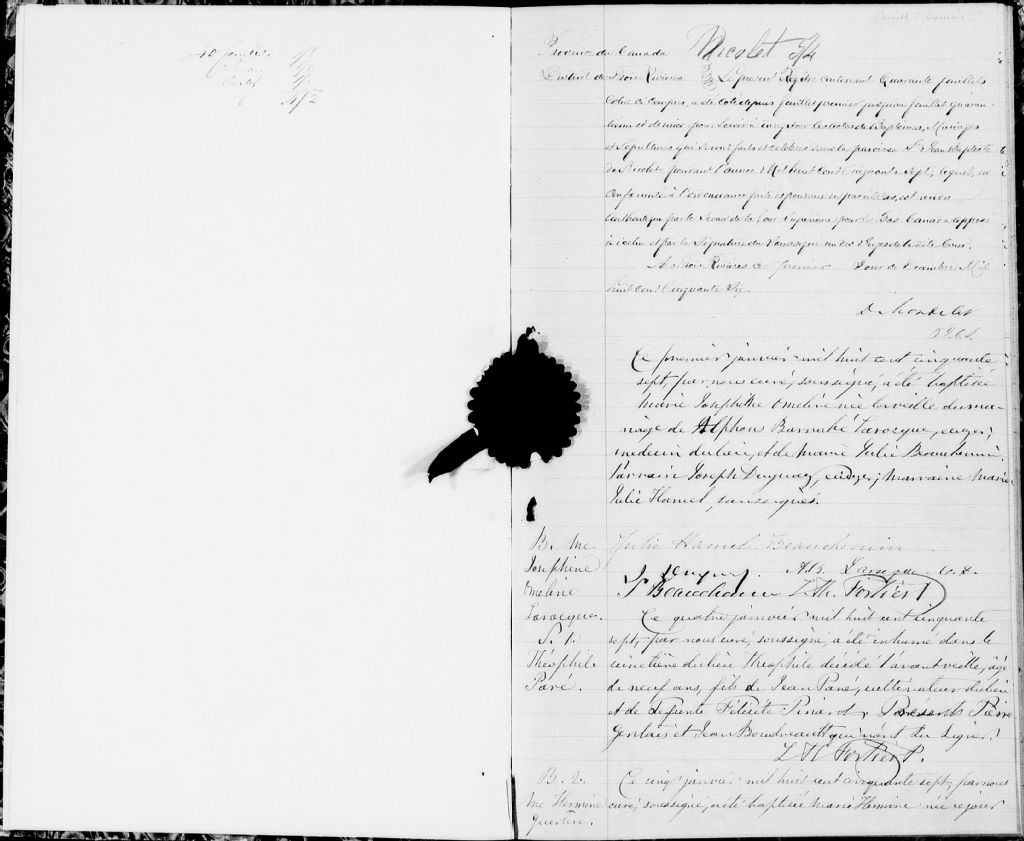 40 feuillets
Province du Canada Nicolet 5/4
District de Trois Rivières Le présent Registre contenant Quarante feuillets
Cotés ce compris, a été coté depuis feuillet premier jusqu'au feuillet quaran-
tième et dernier pour servir à Enregistrer les actes de Baptêmes, Mariages
et Sépultures qui seront faits et célébrés dans la paroisse St Jean Baptiste
de Nicolet pendant l'année Mil huit cent cinquante sept, lequel, en
Conformité à l'ordonnance faite et pourvue en pareil cas, est rendu
authentique par le Sceau de la Cour Supérieure pour le Bas Canada apposé
à icelui et par la Signature du Soussigné un des Juges de la dite Cour.
Aux Trois Rivières ce premier Jour de Décembre Mil
huit cent cinquante Six.
D. Mondelet
J.C.S.
Ce premier janvier mil huit cent cinquante
sept, par nous curé, soussigné, a été baptisée
Marie Josephthe Omeline née la veille du ma-
riage de Alphon Barnabé Larocque, écuyer,
medecin du lieu, et de Marie Julie Beauchemin.
Parrain Joseph Duguay, écuyer; marraine Marie
Julie Hamel, soussignés.
B. Me
Josephine
Omeline
Larocque.
Julie Hamel Beauchemin
J. Duguay. A.B. Larocque
J Beauchemin L. Th. Fortier P
S. 1.
Théophile
Paré.
Ce quatre janvier mil huit cent cinquante
sept, par nous curé, soussigné, a été inhumé dans le
cimetière du lieu Théophile décédé l'avant veille, âgé
de neuf ans, fils de Jean Paré, cultivateur du lieu
et de defunte Félicité Pinard. Présents Pierre
Gentais et Jean Boudreault qui n'ont su signer.
L. Th Fortier P.
B. 2.
Me Hermine
Guertin.
Ce cinq janvier mil huit cent cinquante sept, par nous
curé, soussigné, a été baptisée Marie Hermine née ce jour